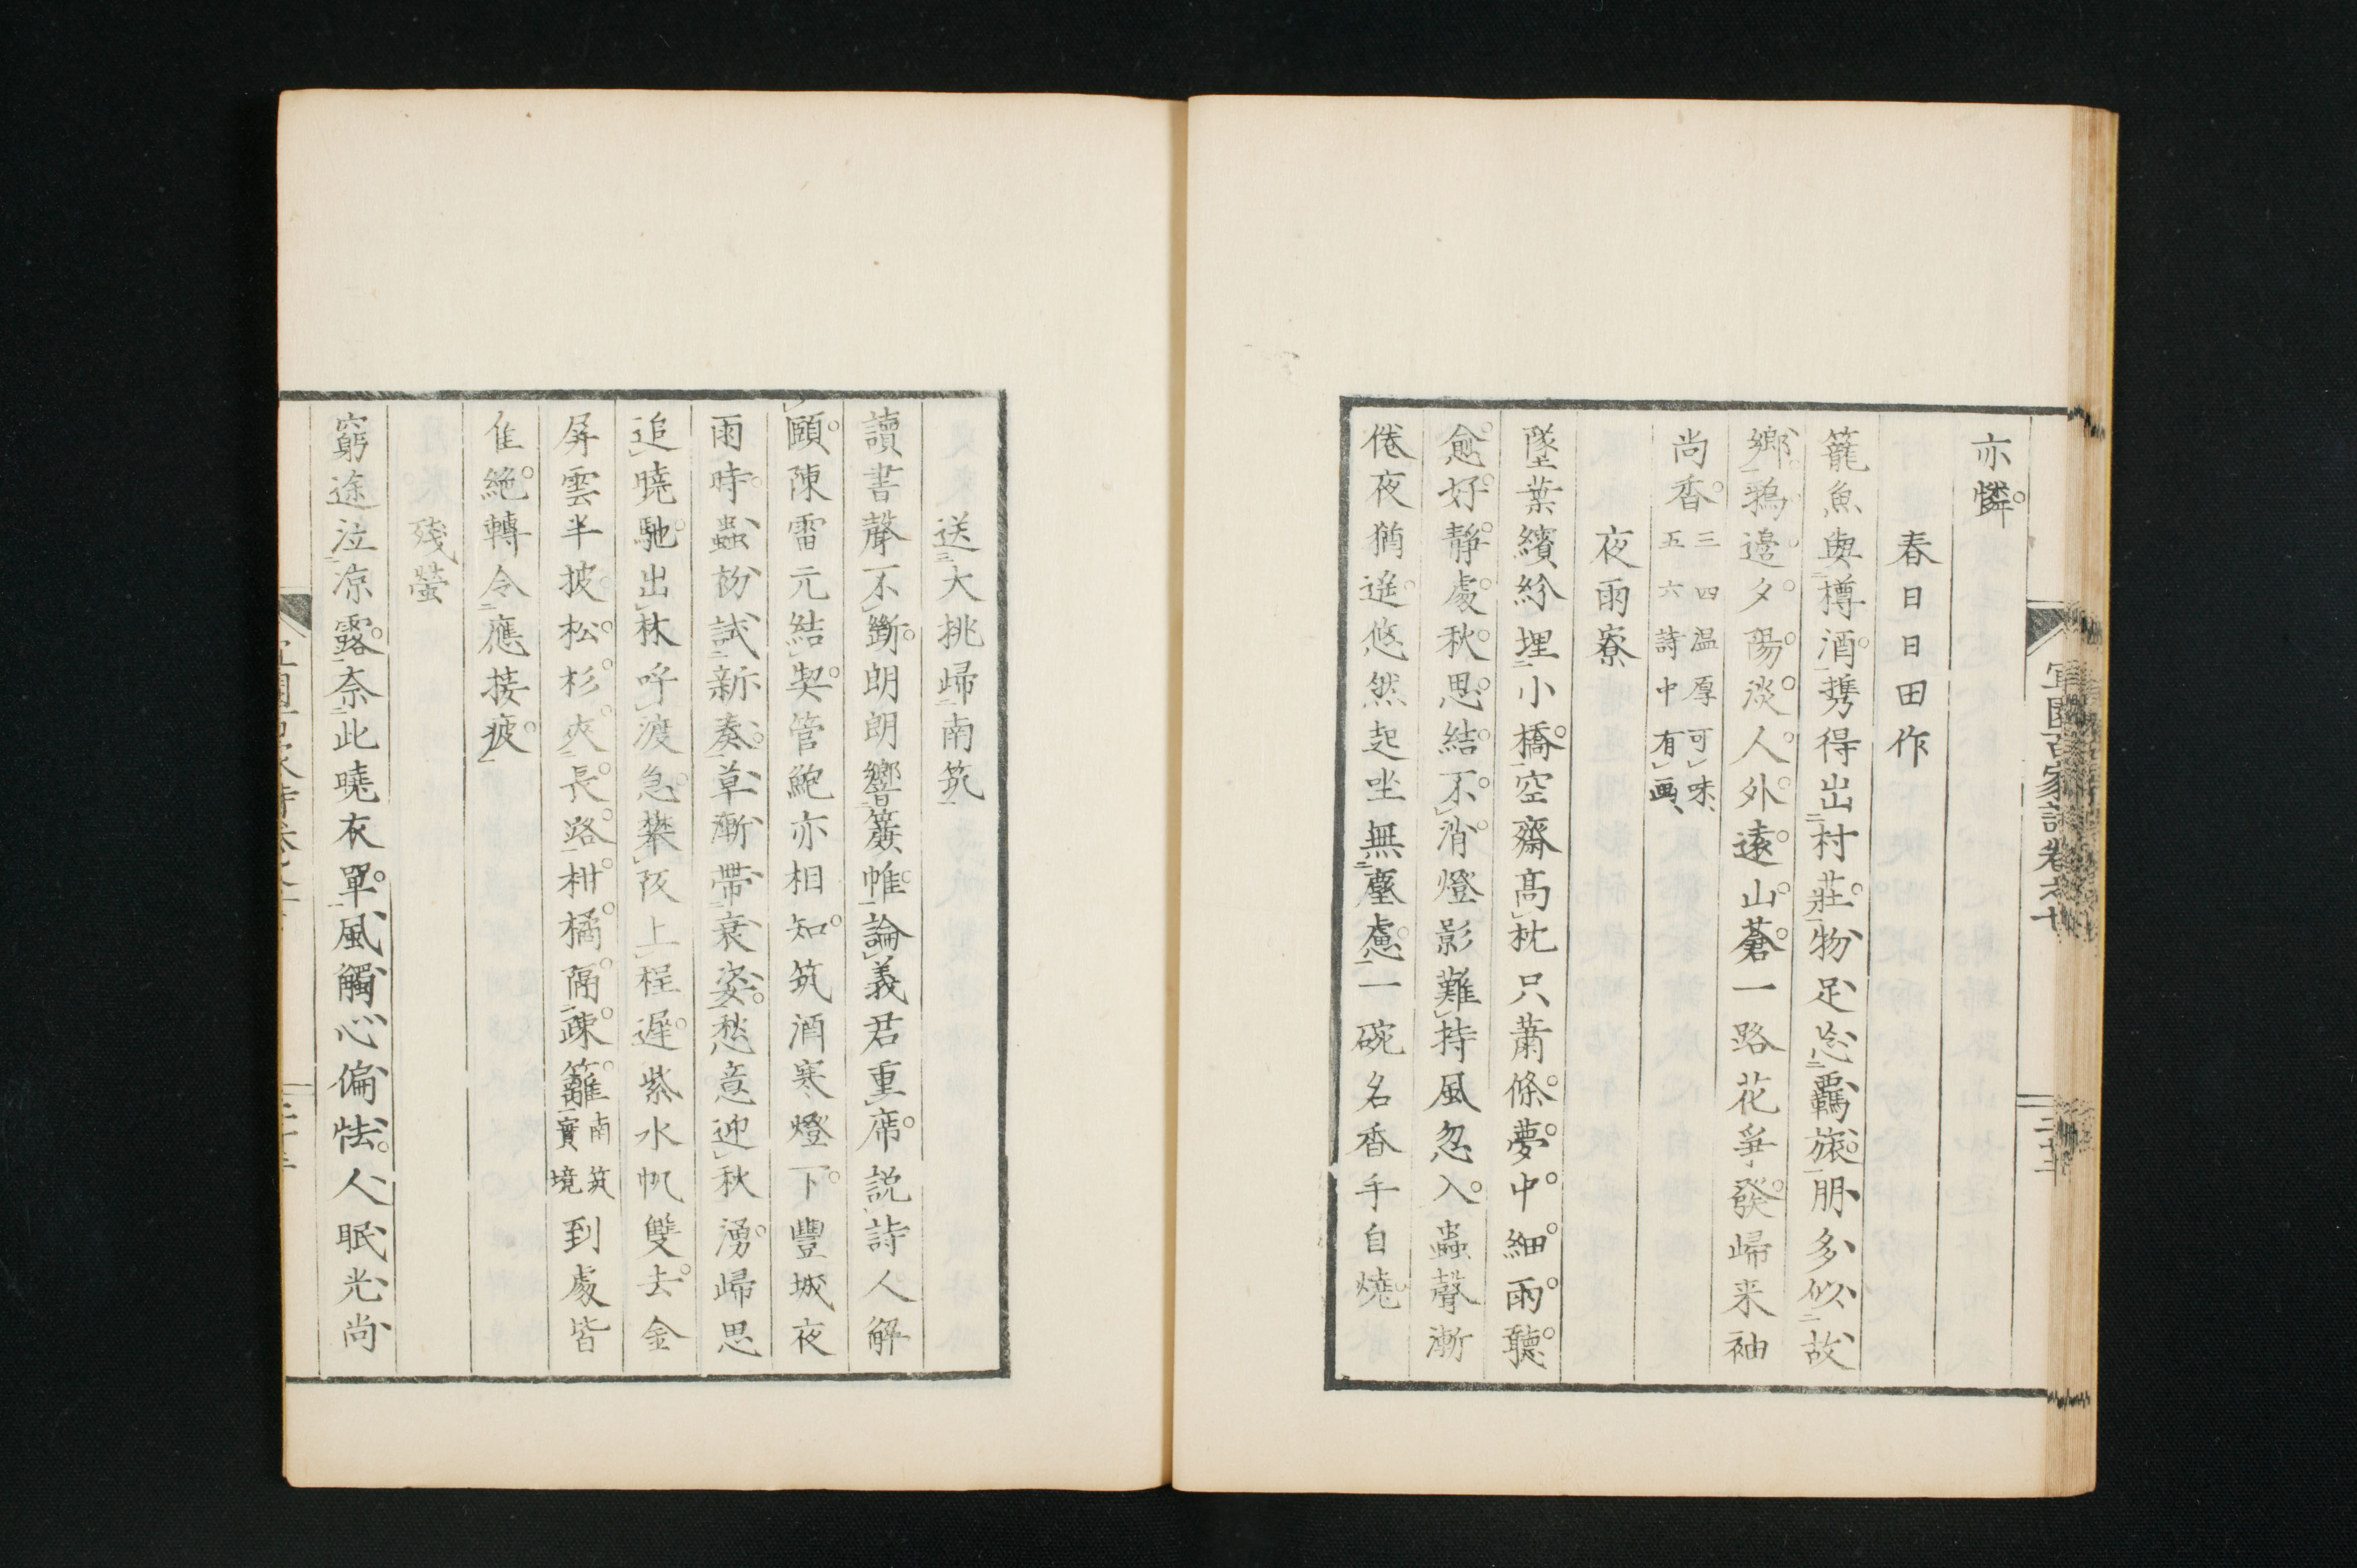 亦憐
春日日田作
籠魚與樽酒携得出村莊物足忘羈旅朋多似故
鄉鴉邊夕陽淡人外遠山蒼一路花爭發歸来袖
尚香三四温厚可味五六詩中有画
夜雨寮
墜葉繽紛埋小橋空齋高枕只蕭條夢中細雨聽
愈好靜處秋思結不消燈影難持風忽入蟲聲漸
倦夜猶遥悠然起坐無塵慮一碗名香手自燒
宜園百家詩卷之七
送大挑歸南筑
讀書聲不斷朗朗響簧帷論義君重席説詩人解
頤陳雷元結契管鮑亦相知筑酒寒燈下豐城夜
雨時蟲初試新奏草漸帶衰姿愁意迎秋湧歸思
追曉馳出林呼渡急椉阪上程遲紫水帆雙去金
屏雲半披松杉夾長路柑橘隔疎籬南筑實境到處皆
佳絶轉令應接疲
殘螢
窮途泣凉露奈此曉衣單風觸心偏怯人眠光尚